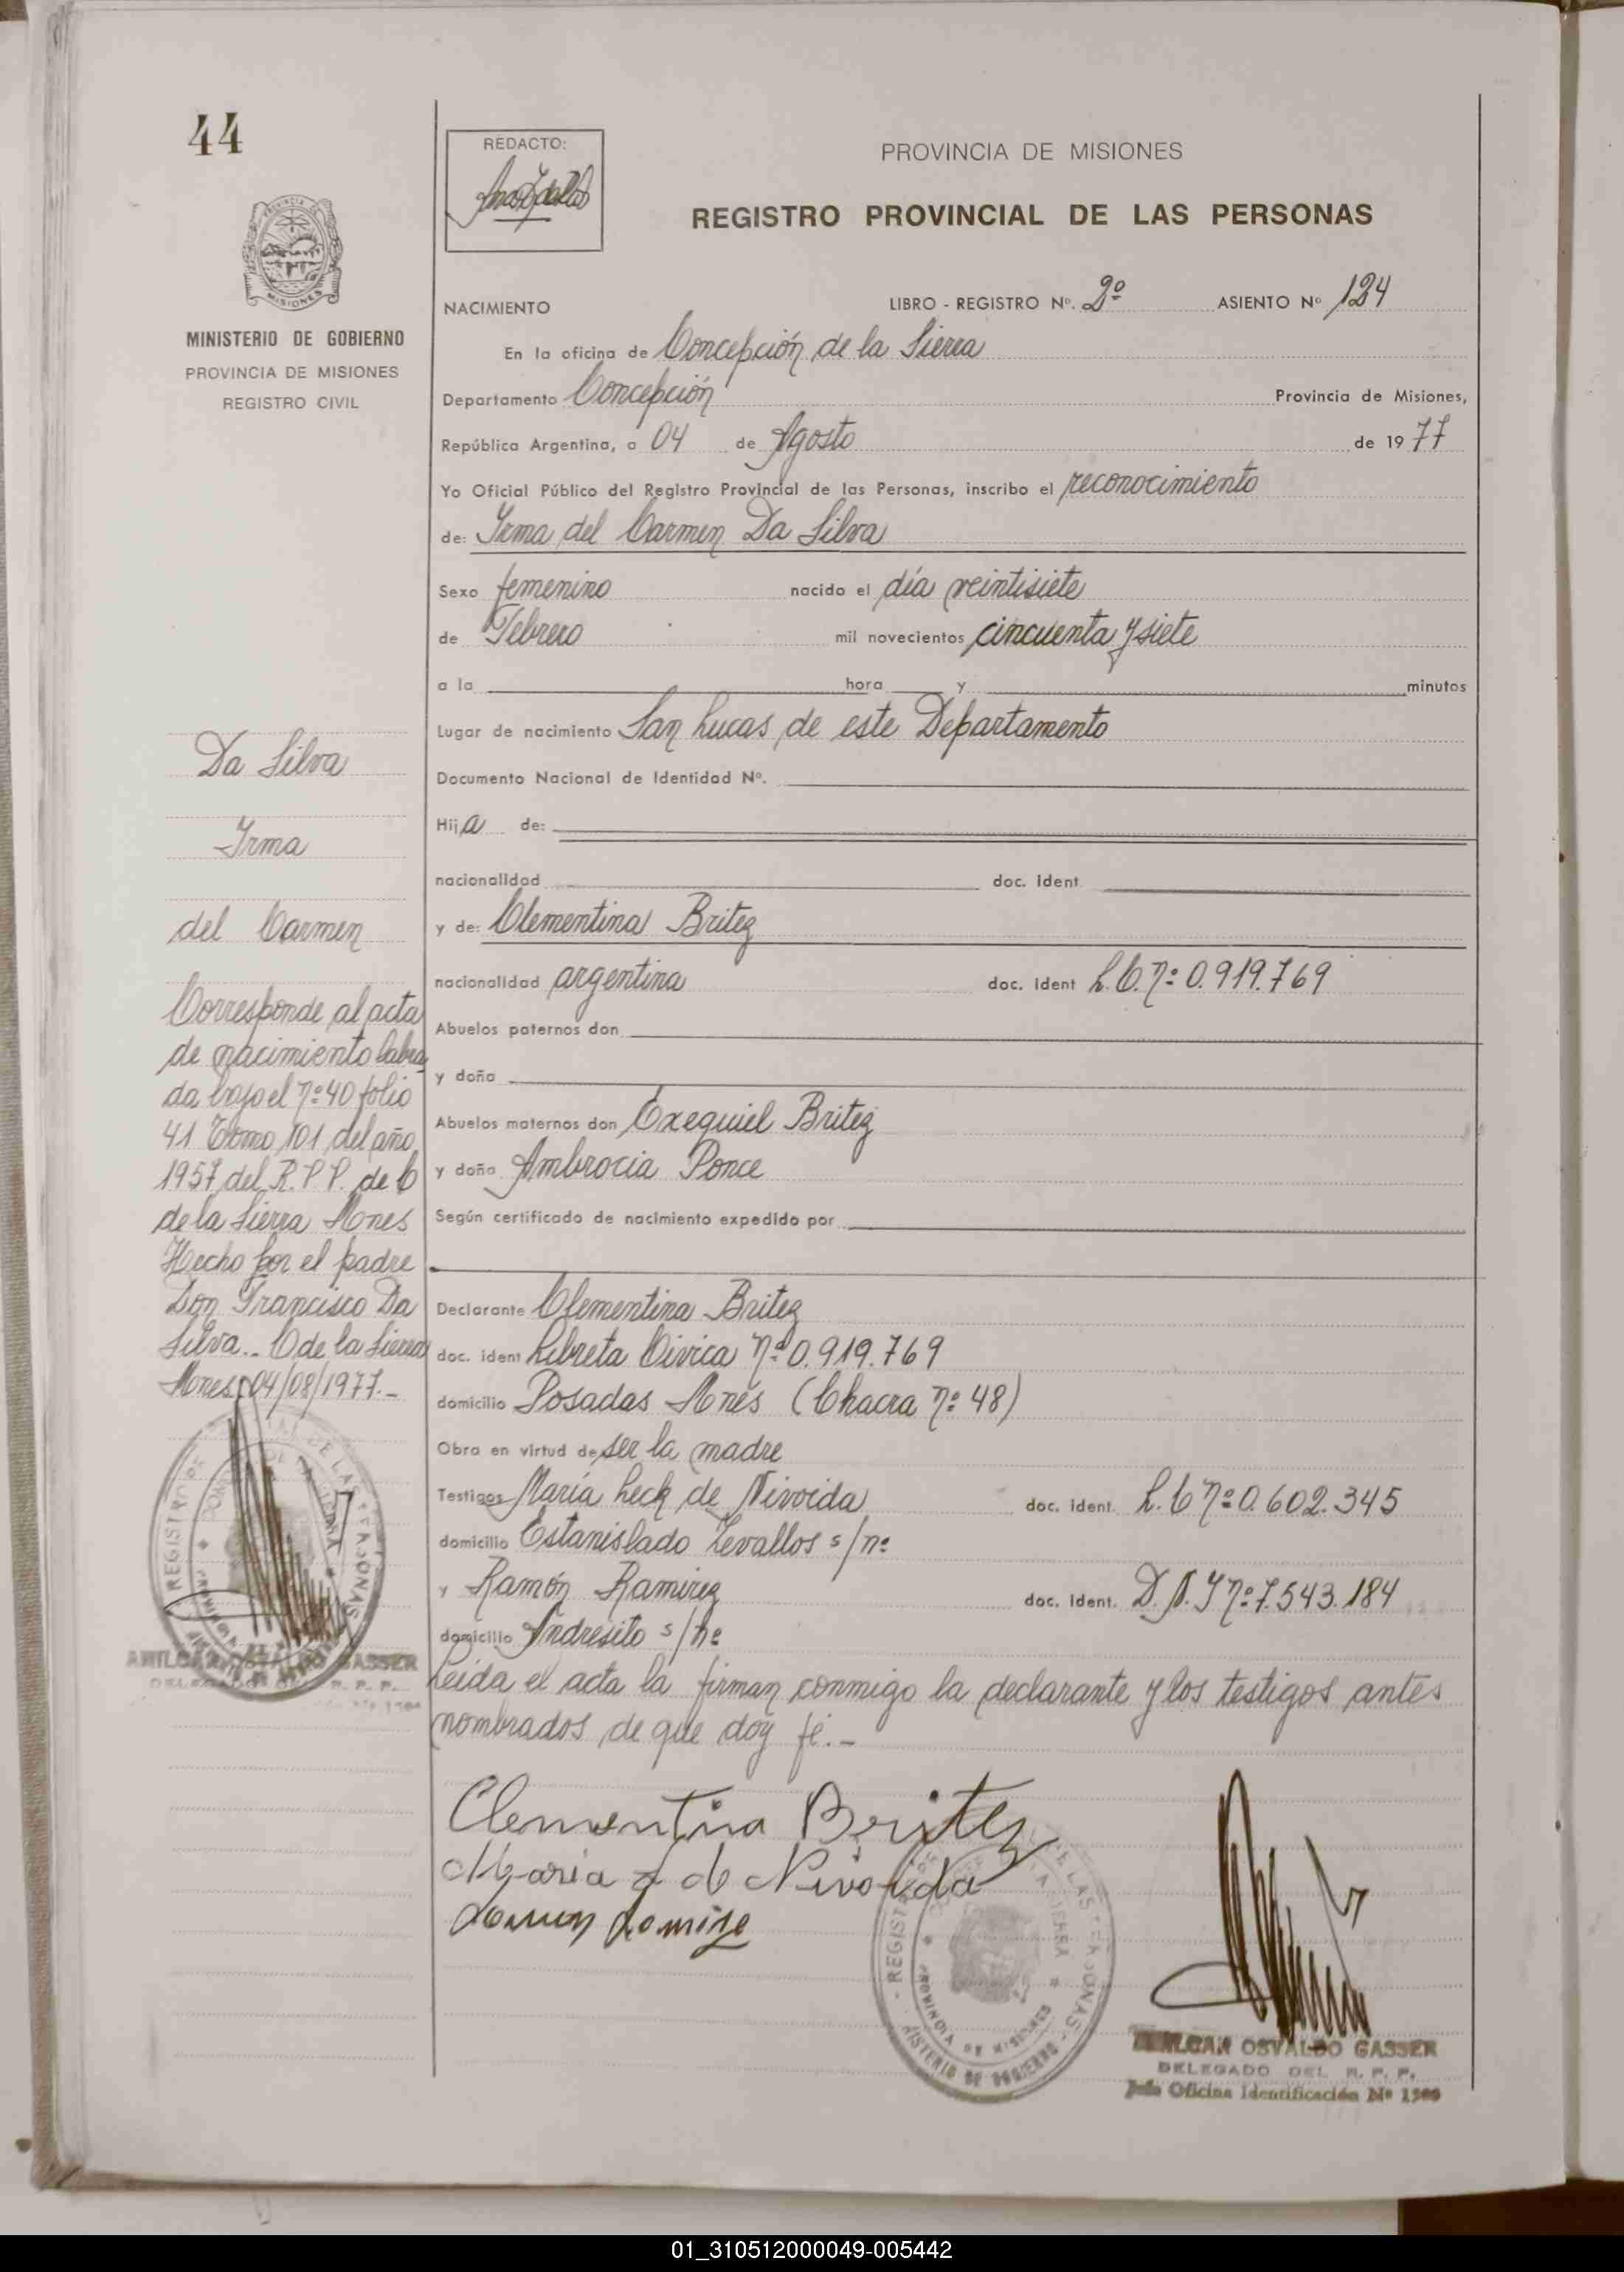 44
REDACTO:
PROVINCIA DE MISIONES
REGISTRO PROVINCIAL DE LAS PERSONAS
MINISTERIO DE GOBIERNO
PROVINCIA DE MISIONES
REGISTRO CIVIL
NACIMIENTO LIBRO - REGISTRO Nº. 2º ASIENTO Nº 124
En la oficina de Concepción de la Sierra
Departamento Concepción Provincia de Misiones,
República Argentina, a 04 de Agosto de 1977
Yo Oficial Público del Registro Provincial de las Personas, inscribo el reconocimiento
de: Irma del Carmen Da Silva
Sexo femenino nacido el día veintisiete
de Febrero mil novecientos cincuenta y siete
a la hora y minutos
Lugar de nacimiento San Lucas de este Departamento
Documento Nacional de Identidad Nº.
Hija de:
nacionalidad doc. Ident
y de: Clementina Britez
nacionalidad argentina doc. Ident L.C. nº 0.919.769
Abuelos paternos don
y doña
Abuelos maternos don Exequiel Britez
y doña Ambrocia Ponce
Según certificado de nacimiento expedido por
Declarante Clementina Britez
doc. ident Libreta Civica Nº 0.919.769
domicilio Posadas Mnes (Chacra nº 48)
Obra en virtud de ser la madre
Testigos María Leck de Nivoida doc. ident. L.C nº 0.602.345
domicilio Estanislado Zevallos s/nº
y Ramón Ramirez doc. Ident. D.N.I nº 7.543.184
domicilio Andresito s/nº
Leida el acta la firman conmigo la declarante y los testigos antes
nombrados de que doy fé.-
Da Silva
Irma
del Carmen
Corresponde al acta
de nacimiento labra
da bajo el nº 40 folio
41 Tomo 101 del año
1957 del R.P.P. de C
de la Sierra Mnes
Hecho por el padre
Don Francisco Da
Silva.- C de la Sierra
Mnes, 04/08/1977.-
Clementina Britez
Maria L de Nivoida
Ramon Ramirez
REGISTRO DE LAS PERSONAS
PROVINCIA DE MISIONES
MINISTERIO DE GOBIERNO
AMILCAR OSVALDO GASSER
DELEGADO DEL R. P. P.
AMILCAR OSVALDO GASSER
DELEGADO DEL R. P. P.
Jefe Oficina Identificación Nº 1500
01_310512000049-005442